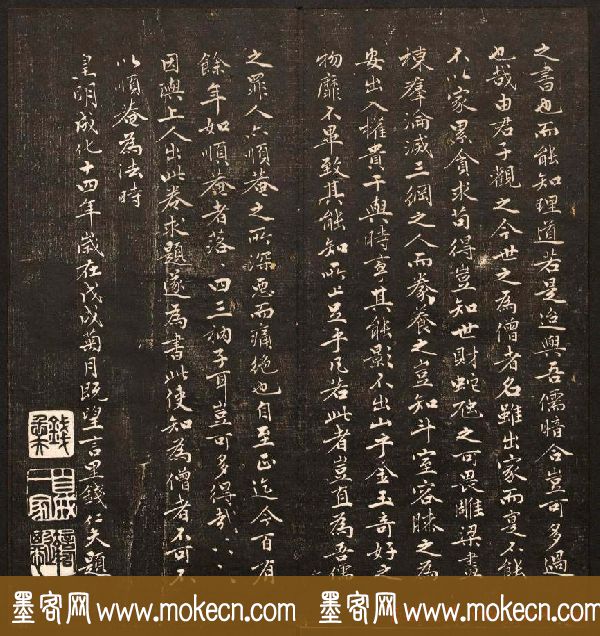 之書也而能知理道若是迨與吾儒暗合豈可多過
也哉由君子觀之今世之為僧者名雖出家而寔不能
不以家累貪求苟得豈知世財蛇虺之可畏雕梁畫
棟羣淪滅三綱之人而豢養之豈知斗室容膝之為
安出入權貴干與時事其能影不出山乎金玉奇好之
物靡不畢致其能知所止足乎凡若此者豈直為吾儒
之罪人亦順菴之所深惡而痛絕也自至正迄今百有
餘年如順菴者落落四三衲子耳豈可多得哉
因與上人出此卷求題遂為書此使知為僧者不可不
以順菴為法時
皇明成化十四年歲在戊戌菊月既望言里錢仁夫題
墨客网 www.mokecn.com 墨客网 www.mokecn.com